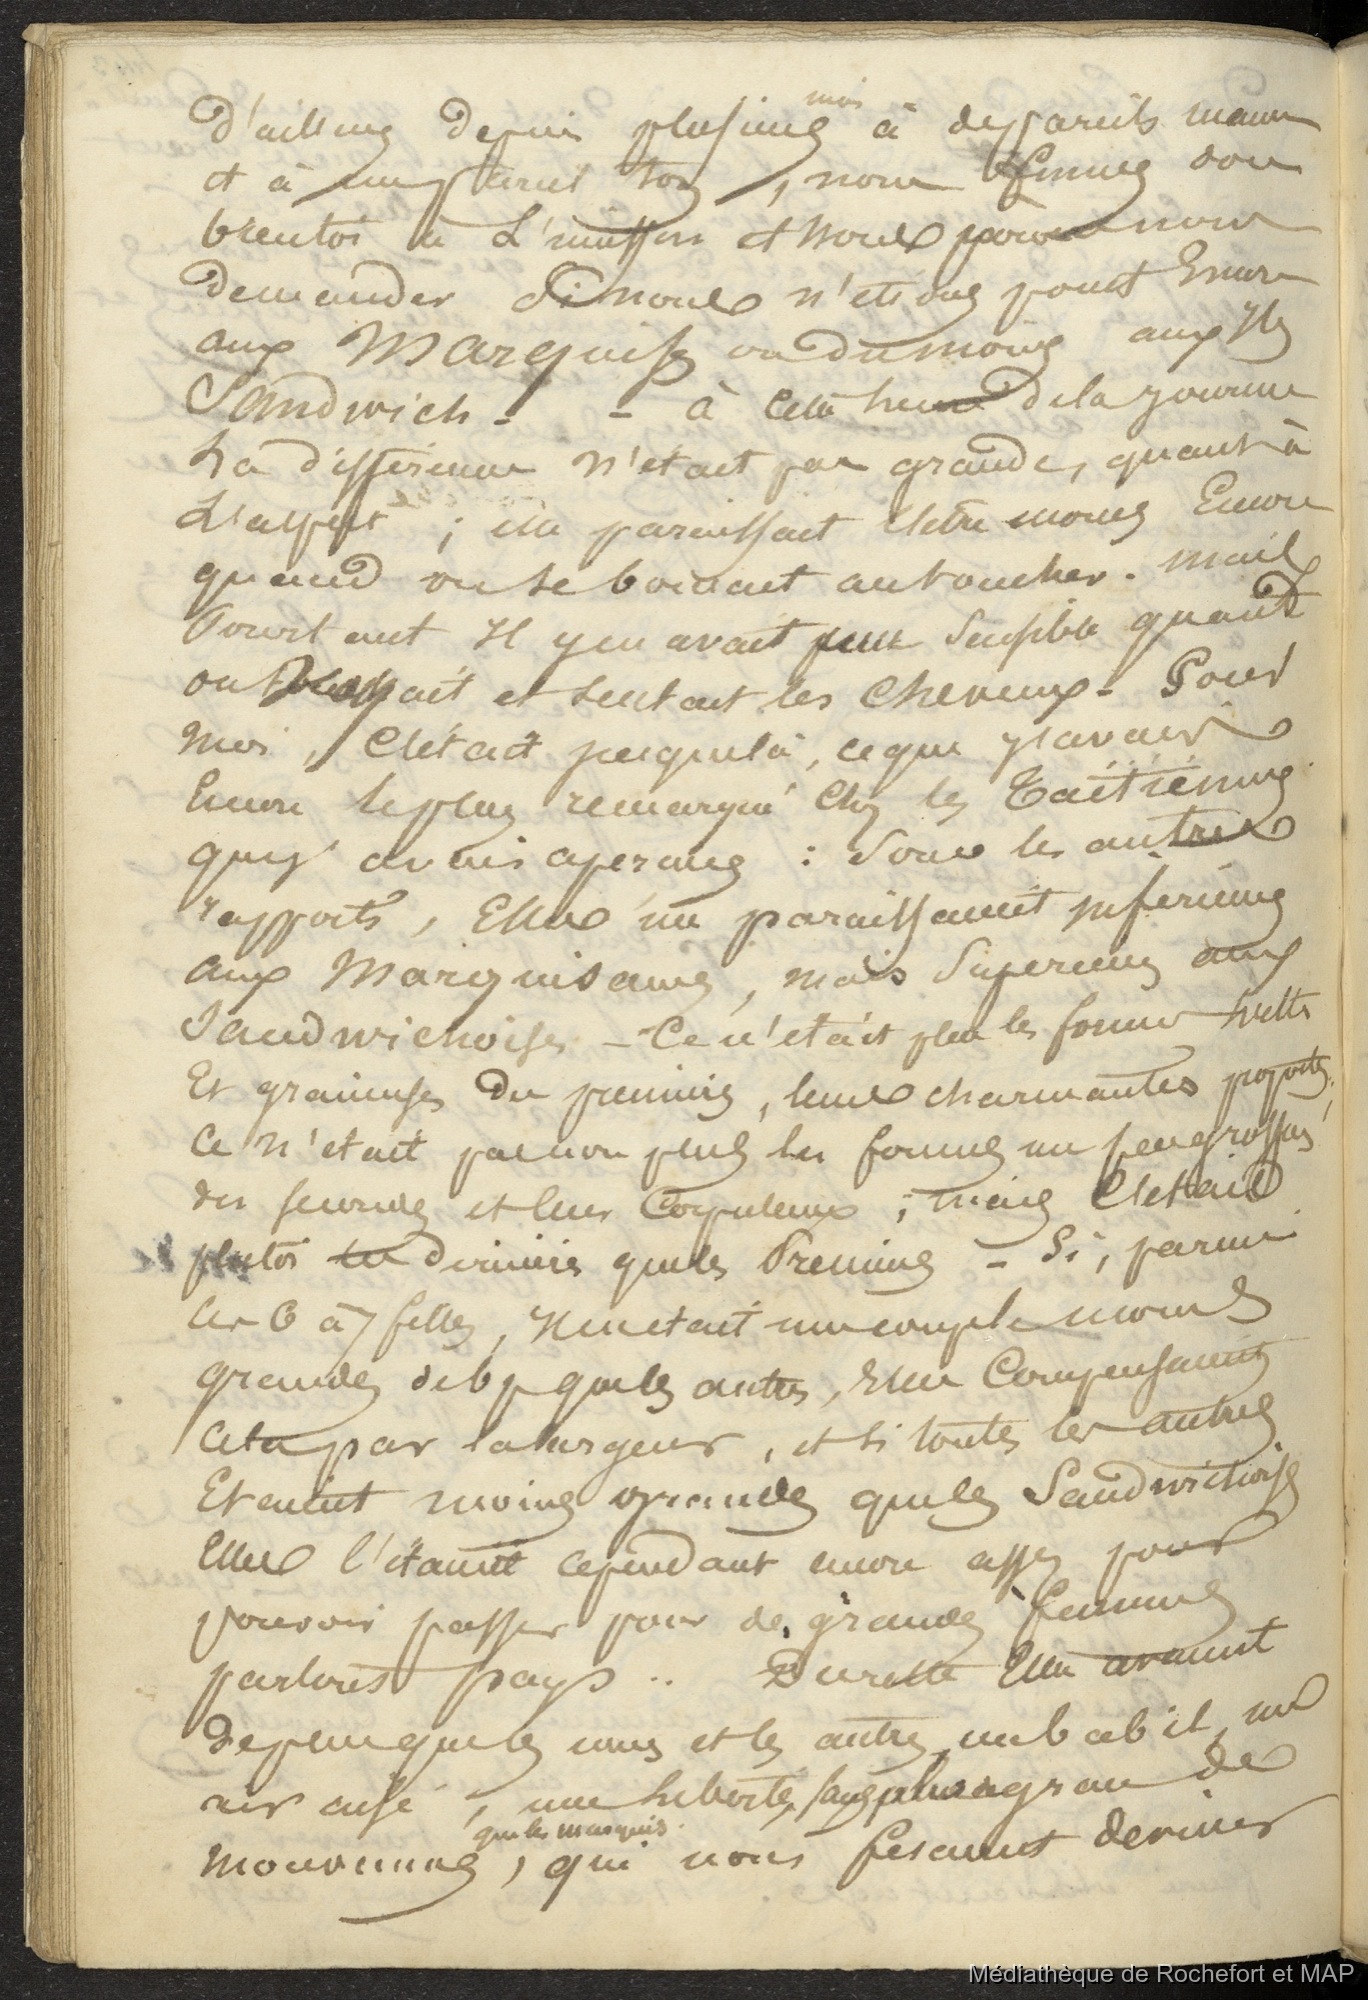 mois
d'ailleurs depuis plusieurs à de pareils
et à un pareil ton, nous fumes donc
bientot à L'unisson et nous pouvions nous
demander Si nous n'etions point Encore
aux Marquises ou du moins aux Iles
Sandwich - - à cette heure de la journée
La différence n'etait pas grande, quant à
L'aspect ; elle paraissait L'etre moins Encore
quand on se bornait au toucher. mais
Pourtant Il y en avait sensible quand
on et sentait les cheveux - Pour
moi, C'était jusque là, ce que j'avais
Encore le plus remarqué Chez les Taïtiennes
que j'avais aperçues : Sous les autres
rapports, Elles me paraissaient inferieures
aux Marquisaines, mais Superieures aux
Sandwichoises - Ce n'etait plus les formes sveltes
Et gracieuses des premieres, leurs charmantes
Ce n'etait pas non plus les formes un peu grosses
des secondes et leur Corpulence ; mais C'etait
plutot les dernieres que les Premieres - Si, parmi
les 6 à 7 filles, Il en etait une couple moins
grandes de que les autres, Elles Compensaient
cela par la largeur, et si toutes les autres
Etaient moins grandes que les Sandwichoises
Elles l'étaient cependant encore assez pour
pouvoir passer pour de grandes femmes
par tous pays .. Du reste Elles avaient
de plus que les unes et les autres un babil, un
air aisé, une liberté, sans plus grande de
que les marquis.
mouvemens, qui nous fesaient deviner
Médiathèque de Rochefort et MAP